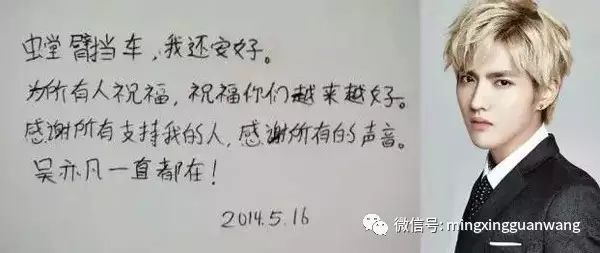 虫堂臂挡车，我还安好。
为所有人祝福，祝福你们越来越好。
感谢所有支持我的人，感谢所有的声音。
吴亦凡一直都在！
2014.5.16
微信号: mingxingguanwang